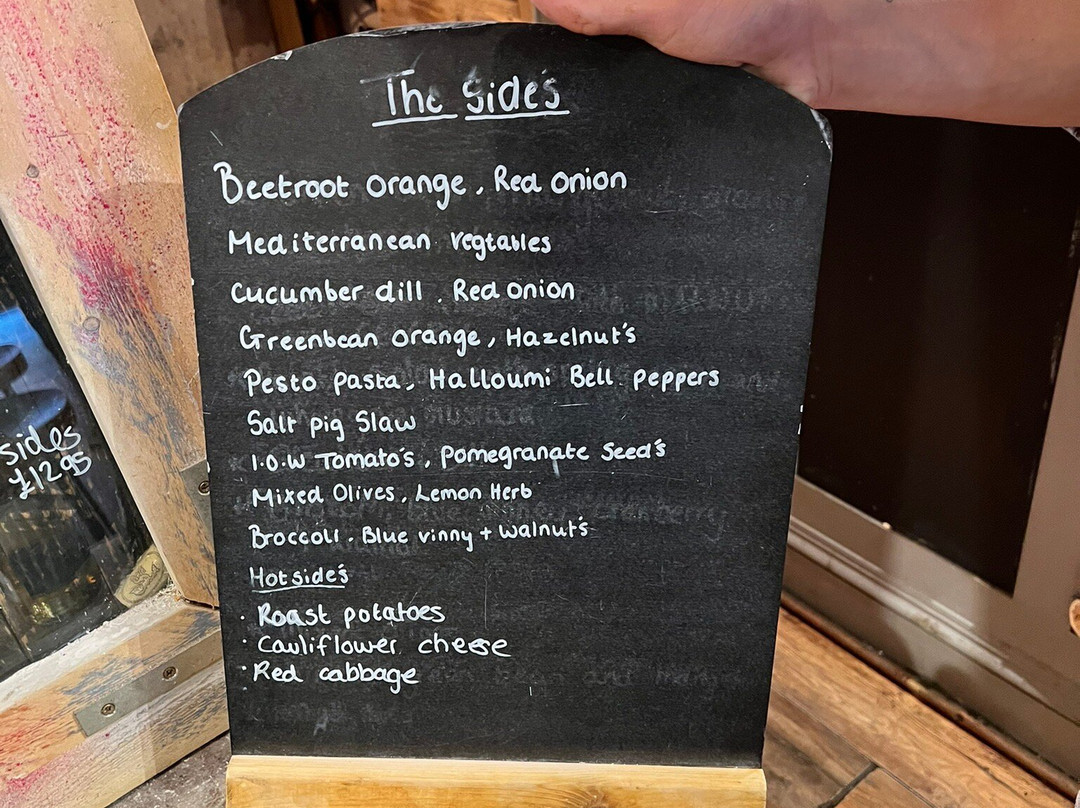 The Side's
Beetroot Orange, Red Onion
Mediterranean vegtables
Cucumber dill. Red onion
Greenbean Orange, Hazelnut's
Pesto Pasta, Halloumi Bell peppers
Salt pig Slaw
I.O.W Tomato's, Pomegranate Seed's
Mixed Olives, Lemon Herb
Broccoli. Blue vinny + walnut's
Hot side's
· Roast potatoes
· Cauliflower cheese
· Red cabbage
sides
£12.95